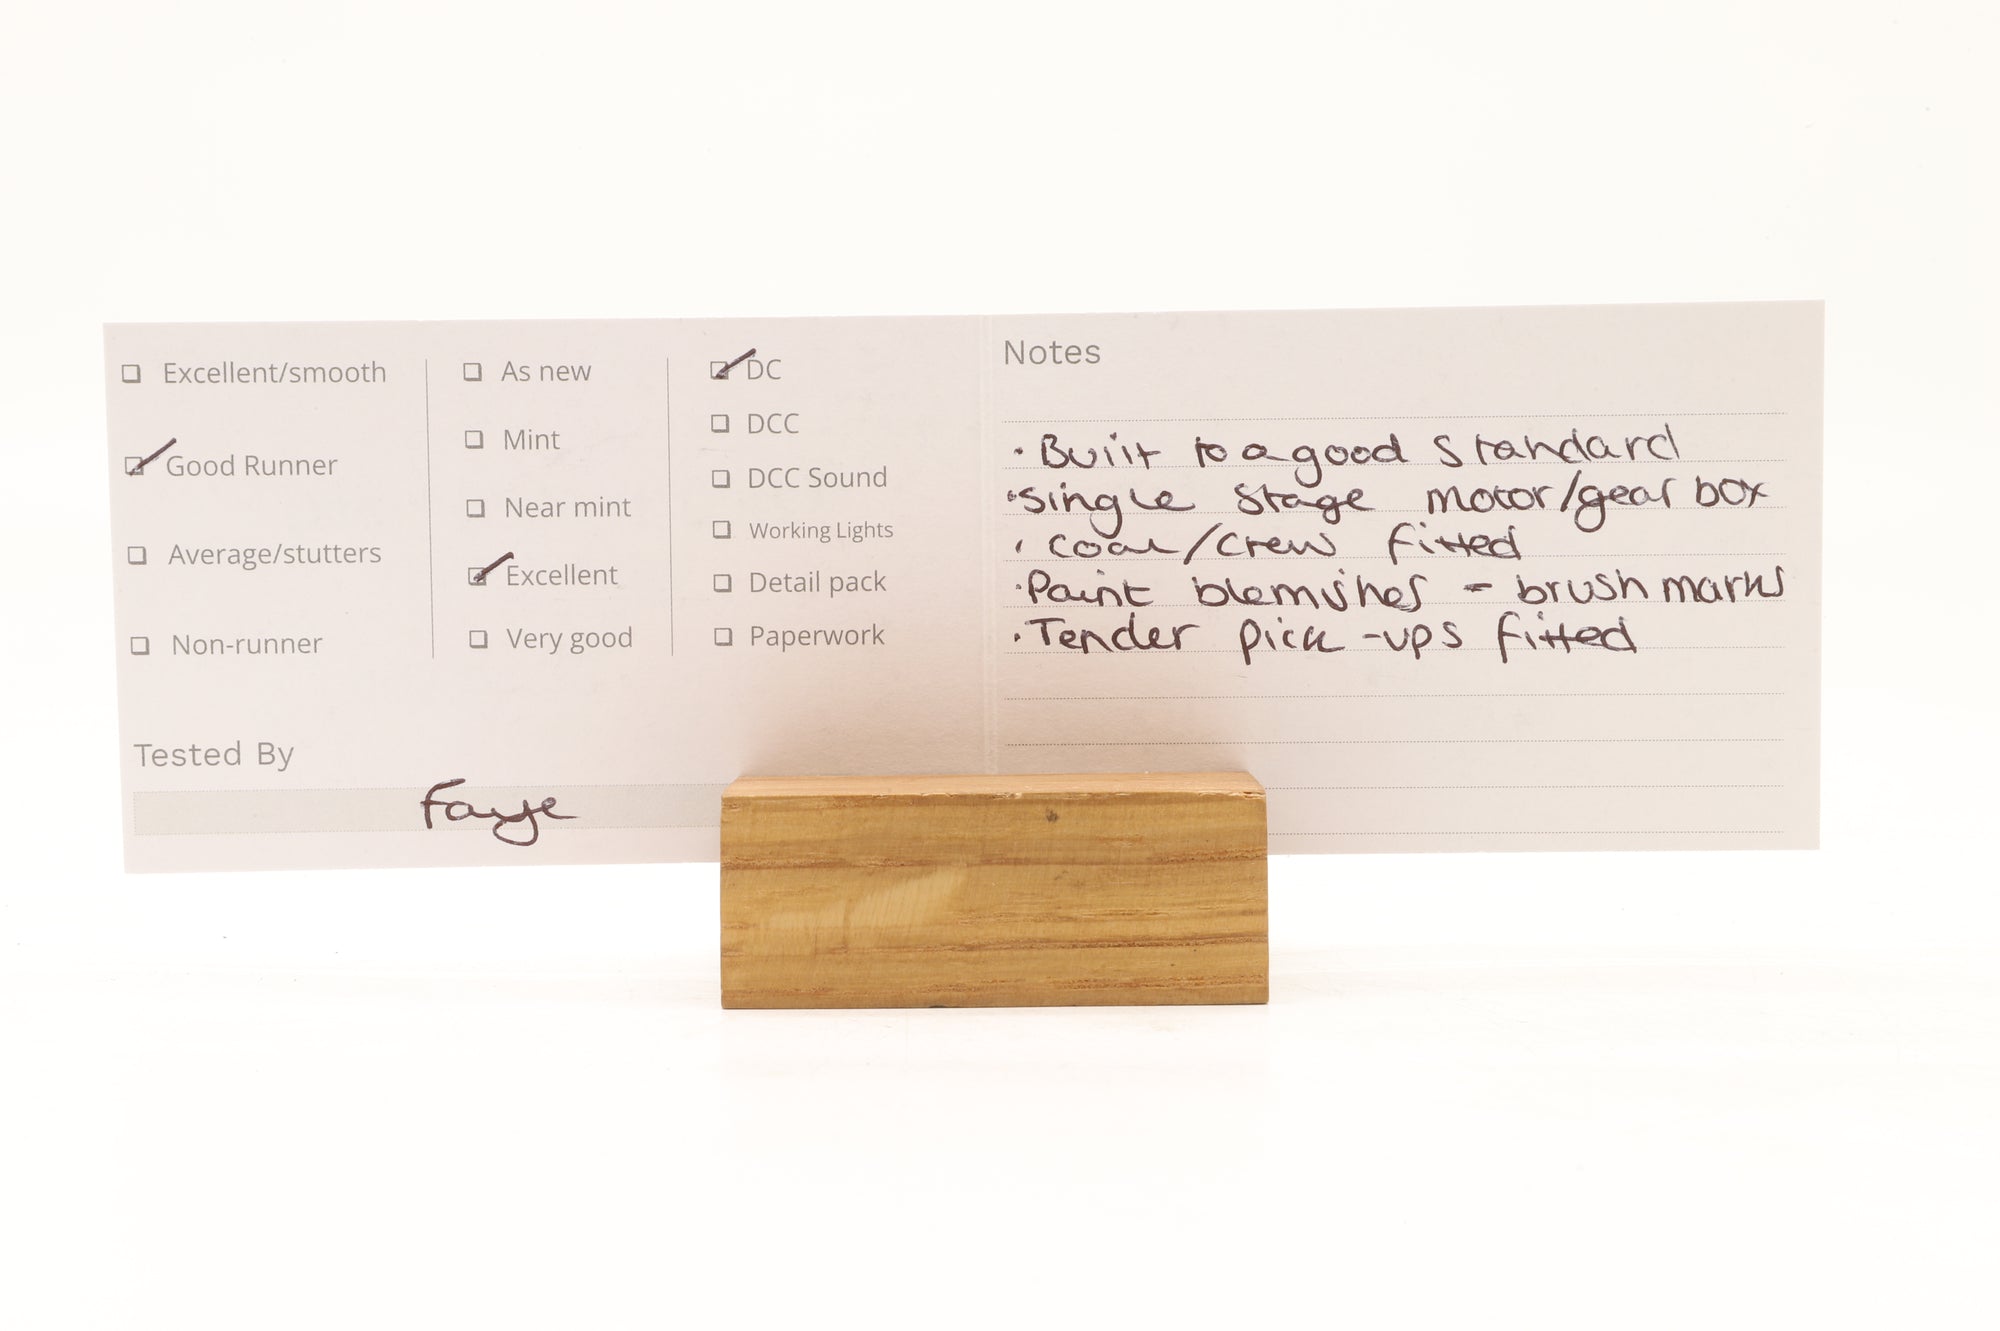 Excellent/smooth
Good Runner
Average/stutters
Non-runner
As new
Mint
Near mint
Excellent
Very good
DC
DCC
DCC Sound
Working Lights
Detail pack
Paperwork
Tested By
Faye
Notes
· Built to a good standard
· Single stage motor/gear box
· Coal/crew fitted
· Paint blemishes - brush marks
· Tender pick-ups fitted